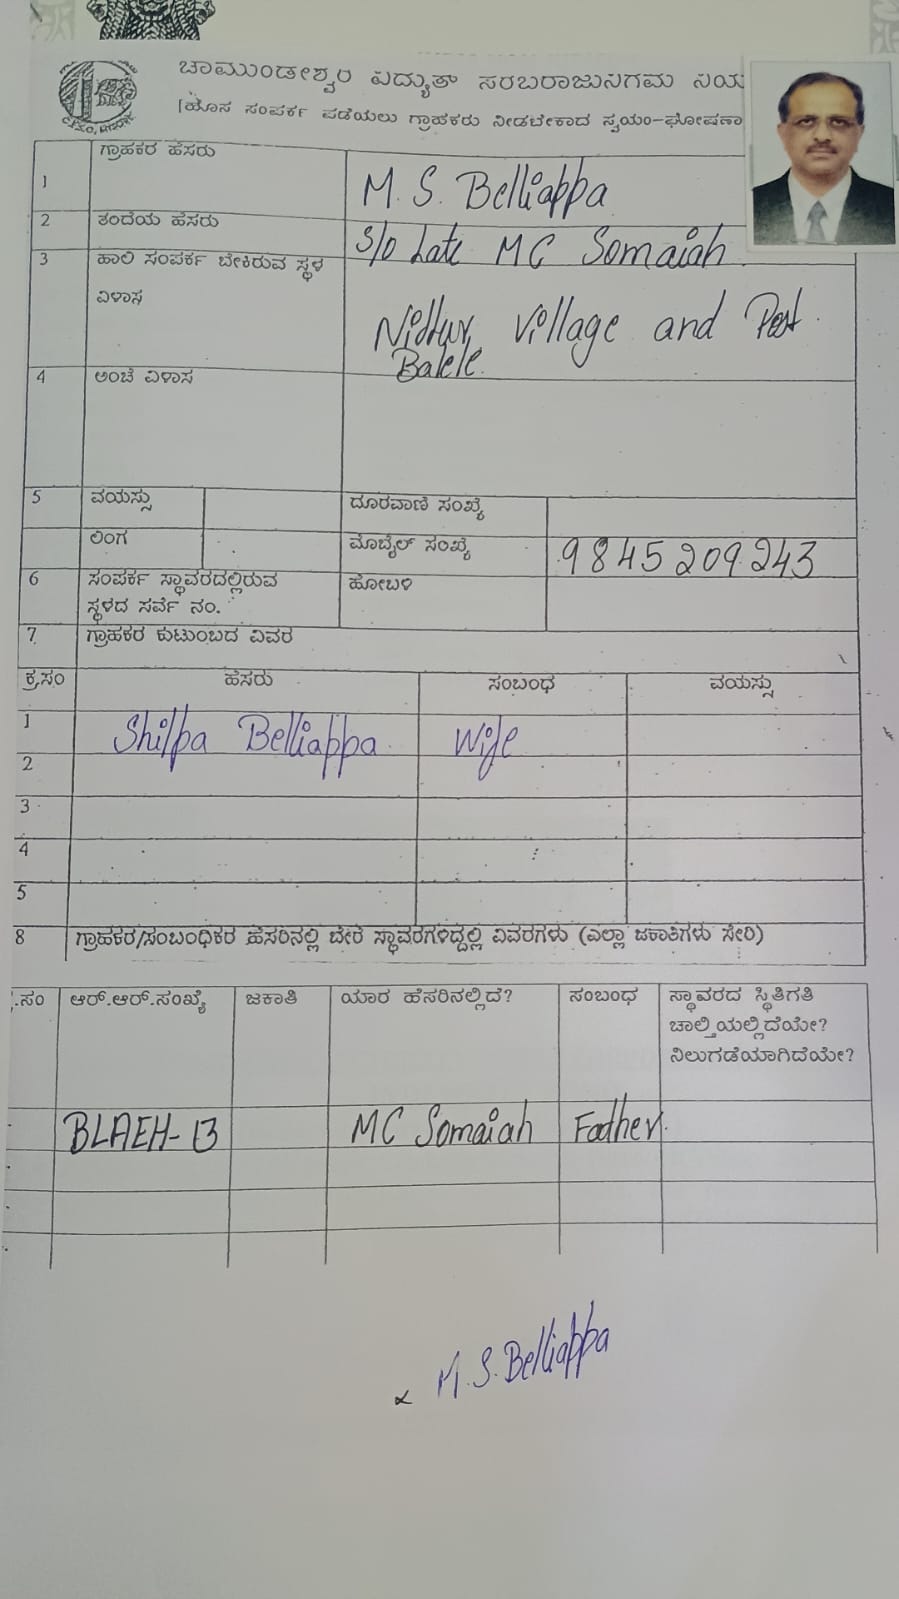 ಚಾಮುಂಡೇಶ್ವರಿ ವಿದ್ಯುತ್ ಸರಬರಾಜು ನಿಗಮ ನಿಯ
[ಹೊಸ ಸಂಪರ್ಕ ಪಡೆಯಲು ಗ್ರಾಹಕರು ನೀಡಬೇಕಾದ ಸ್ವಯಂ-ಘೋಷಣಾ
1 ಗ್ರಾಹಕರ ಹೆಸರು M. S. Belliappa
2 ತಂದೆಯ ಹೆಸರು S/o Late MC Somaiah
3 ಹಾಲಿ ಸಂಪರ್ಕ ಬೇಕಿರುವ ಸ್ಥಳ
ವಿಳಾಸ Village and Post
Balele.
4 ಅಂಚೆ ವಿಳಾಸ
5 ವಯಸ್ಸು ದೂರವಾಣಿ ಸಂಖ್ಯೆ
ಲಿಂಗ ಮೊಬೈಲ್ ಸಂಖ್ಯೆ 9845209243
6 ಸಂಪರ್ಕ ಸ್ಥಾವರದಲ್ಲಿರುವ ಹೋಬಳಿ
ಸ್ಥಳದ ಸರ್ವೆ ನಂ.
7 ಗ್ರಾಹಕರ ಕುಟುಂಬದ ವಿವರ
ಕ್ರ.ಸಂ ಹೆಸರು ಸಂಬಂಧ ವಯಸ್ಸು
1 Shilpa Belliappa Wife
2
3
4
5
8 ಗ್ರಾಹಕರ/ಸಂಬಂಧಿಕರ ಹೆಸರಿನಲ್ಲಿ ಬೇರೆ ಸ್ಥಾವರಗಳಿದ್ದಲ್ಲಿ ವಿವರಗಳು (ಎಲ್ಲಾ ಜಕಾತಿಗಳು ಸೇರಿ)
.ಸಂ ಆರ್.ಆರ್.ಸಂಖ್ಯೆ ಜಕಾತಿ ಯಾರ ಹೆಸರಿನಲ್ಲಿದೆ? ಸಂಬಂಧ ಸ್ಥಾವರದ ಸ್ಥಿತಿಗತಿ
ಚಾಲ್ತಿಯಲ್ಲಿದೆಯೇ?
ನಿಲುಗಡೆಯಾಗಿದೆಯೇ?
BLAEH-13 MC Somaiah Father
M. S. Belliappa